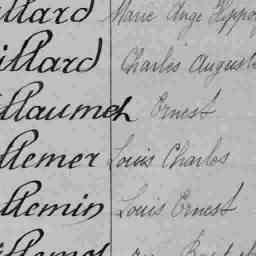 illard Marie Ange Hyppo
illard Charles August
illaumeh Ernest
illemer Louis Charles
illemin Louis Ernest